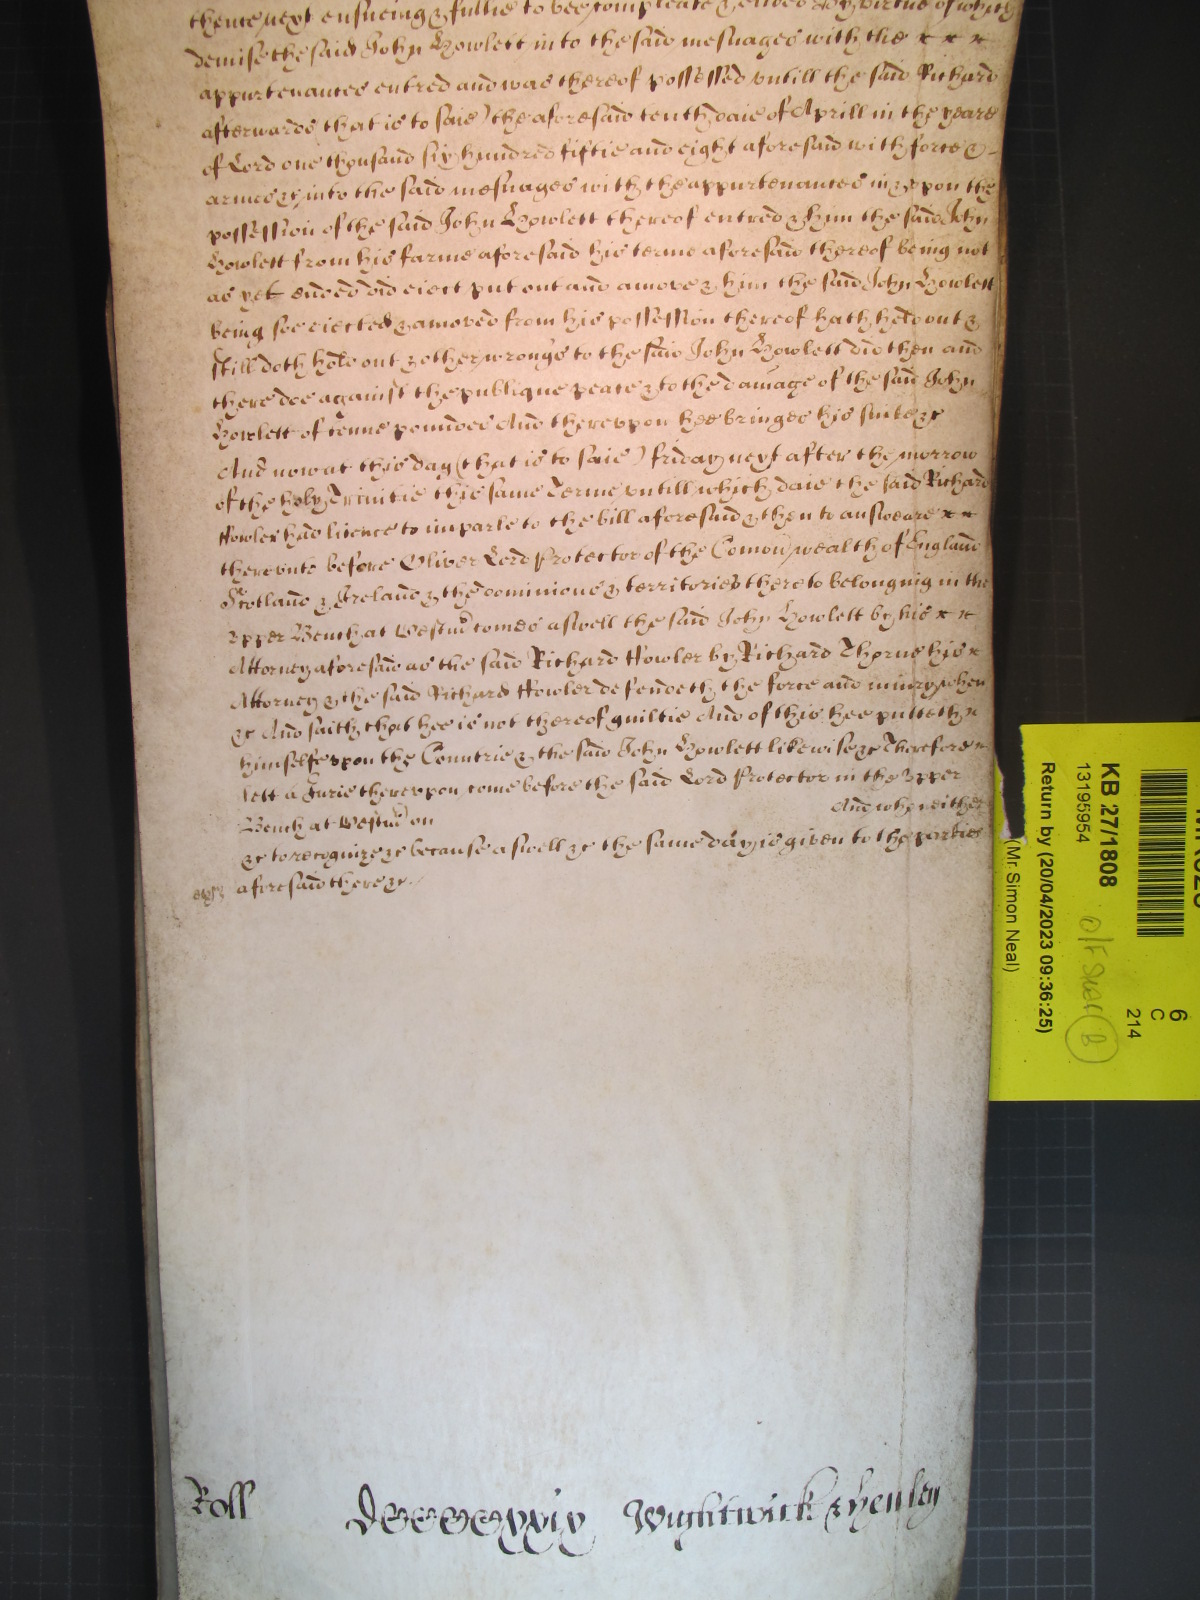 thence next ensueing & fullie to bee compleate & ended By virtue of which
demise the said John Howlett into the said mesuages with the x x x
appurtenances entred and was thereof possessed untill the said Richard
afterwards (that is to saie) the aforesaid tenth daie of Aprill in the yeare
of Lord one thousand six hundred fiftie and eight aforesaid with force &
armes &c into the said mesuages with the appurtenances in & upon the
possession of the said John Howlett thereof entred & him the said John
Howlett from his farme aforesaid his terme aforesaid thereof being not
as yet ended did eiect put out and amove & him the said John Howlett
being soe eiected & amoved from his possession thereof hath held out &
still doth hold out & other wrongs to the said John Howlett did then and
there doe against the publique peace & to the damage of the said John
Howlett of tenne poundes And thereupon hee bringes his suite &c
And now at this day (that is to saie) friday next after the morrow
of the holy Trinitie this same Terme untill which daie the said Richard
ffowler had licence to imparle to the bill aforesaid & then to answeare x x
thereunto before Oliver Lord Protector of the Comon wealth of England
Scotland & Ireland & the dominions & territories thereto belonging in the
upper Bench at Westm comes aswell the said John Howlett by his x x
Attorney aforesaid as the said Richard ffowler by Richard Thorne his x
Attorney & the said Richard ffowler defendeth the force and iniury when
&c And saith that hee is not thereof guiltie And of this hee putteth
himselfe upon the Countrie & the said John Howlett likewise &c Therefore
lett a Jurie thereupon come before the said Lord Protector in the upper
Bench at Westm on And who neither
&c to recognize &c because aswell &c the same day is given to the parties
aforesaid there &c
Roll DCCCCxxix Wightwick & Henley
KB 27/1808
13195954
Return by (20/04/2023 09:36:25)
(Mr. Simon Neal)
6
C
214
B